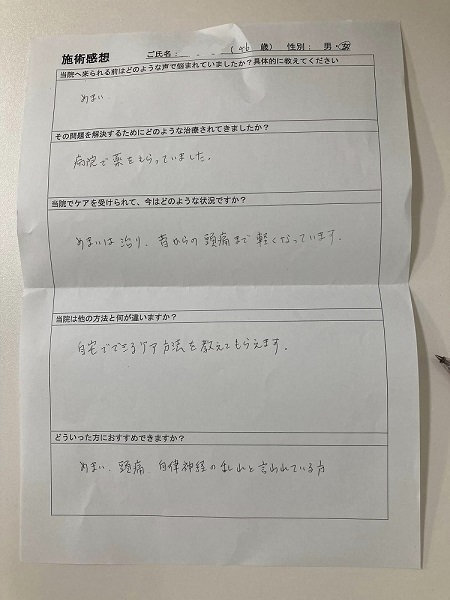 施術感想 ご氏名: (46 歳) 性別: 男・女
当院へ来られる前はどのような声で悩まれていましたか?具体的に教えてください
めまい
その問題を解決するためにどのような治療されてきましたか?
病院で薬をもらっていました。
当院でケアを受けられて、今はどのような状況ですか?
めまいは治り、昔からの頭痛まで軽くなっています。
当院は他の方法と何が違いますか?
自宅でできるケア方法を教えてもらえます。
どういった方におすすめできますか?
めまい、頭痛、自律神経の乱れと言われている方